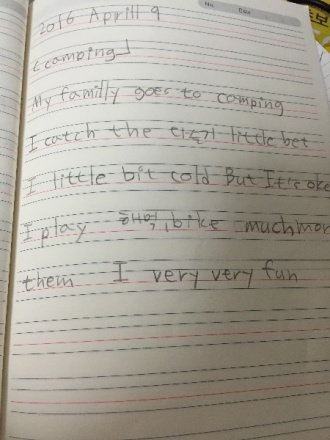 No.
Date
2016 Aprill 9
<camping>
My familly goes to camping
I catch the little bet
I little bit cold But It's oke
I play bike muchmor
them I very very fun